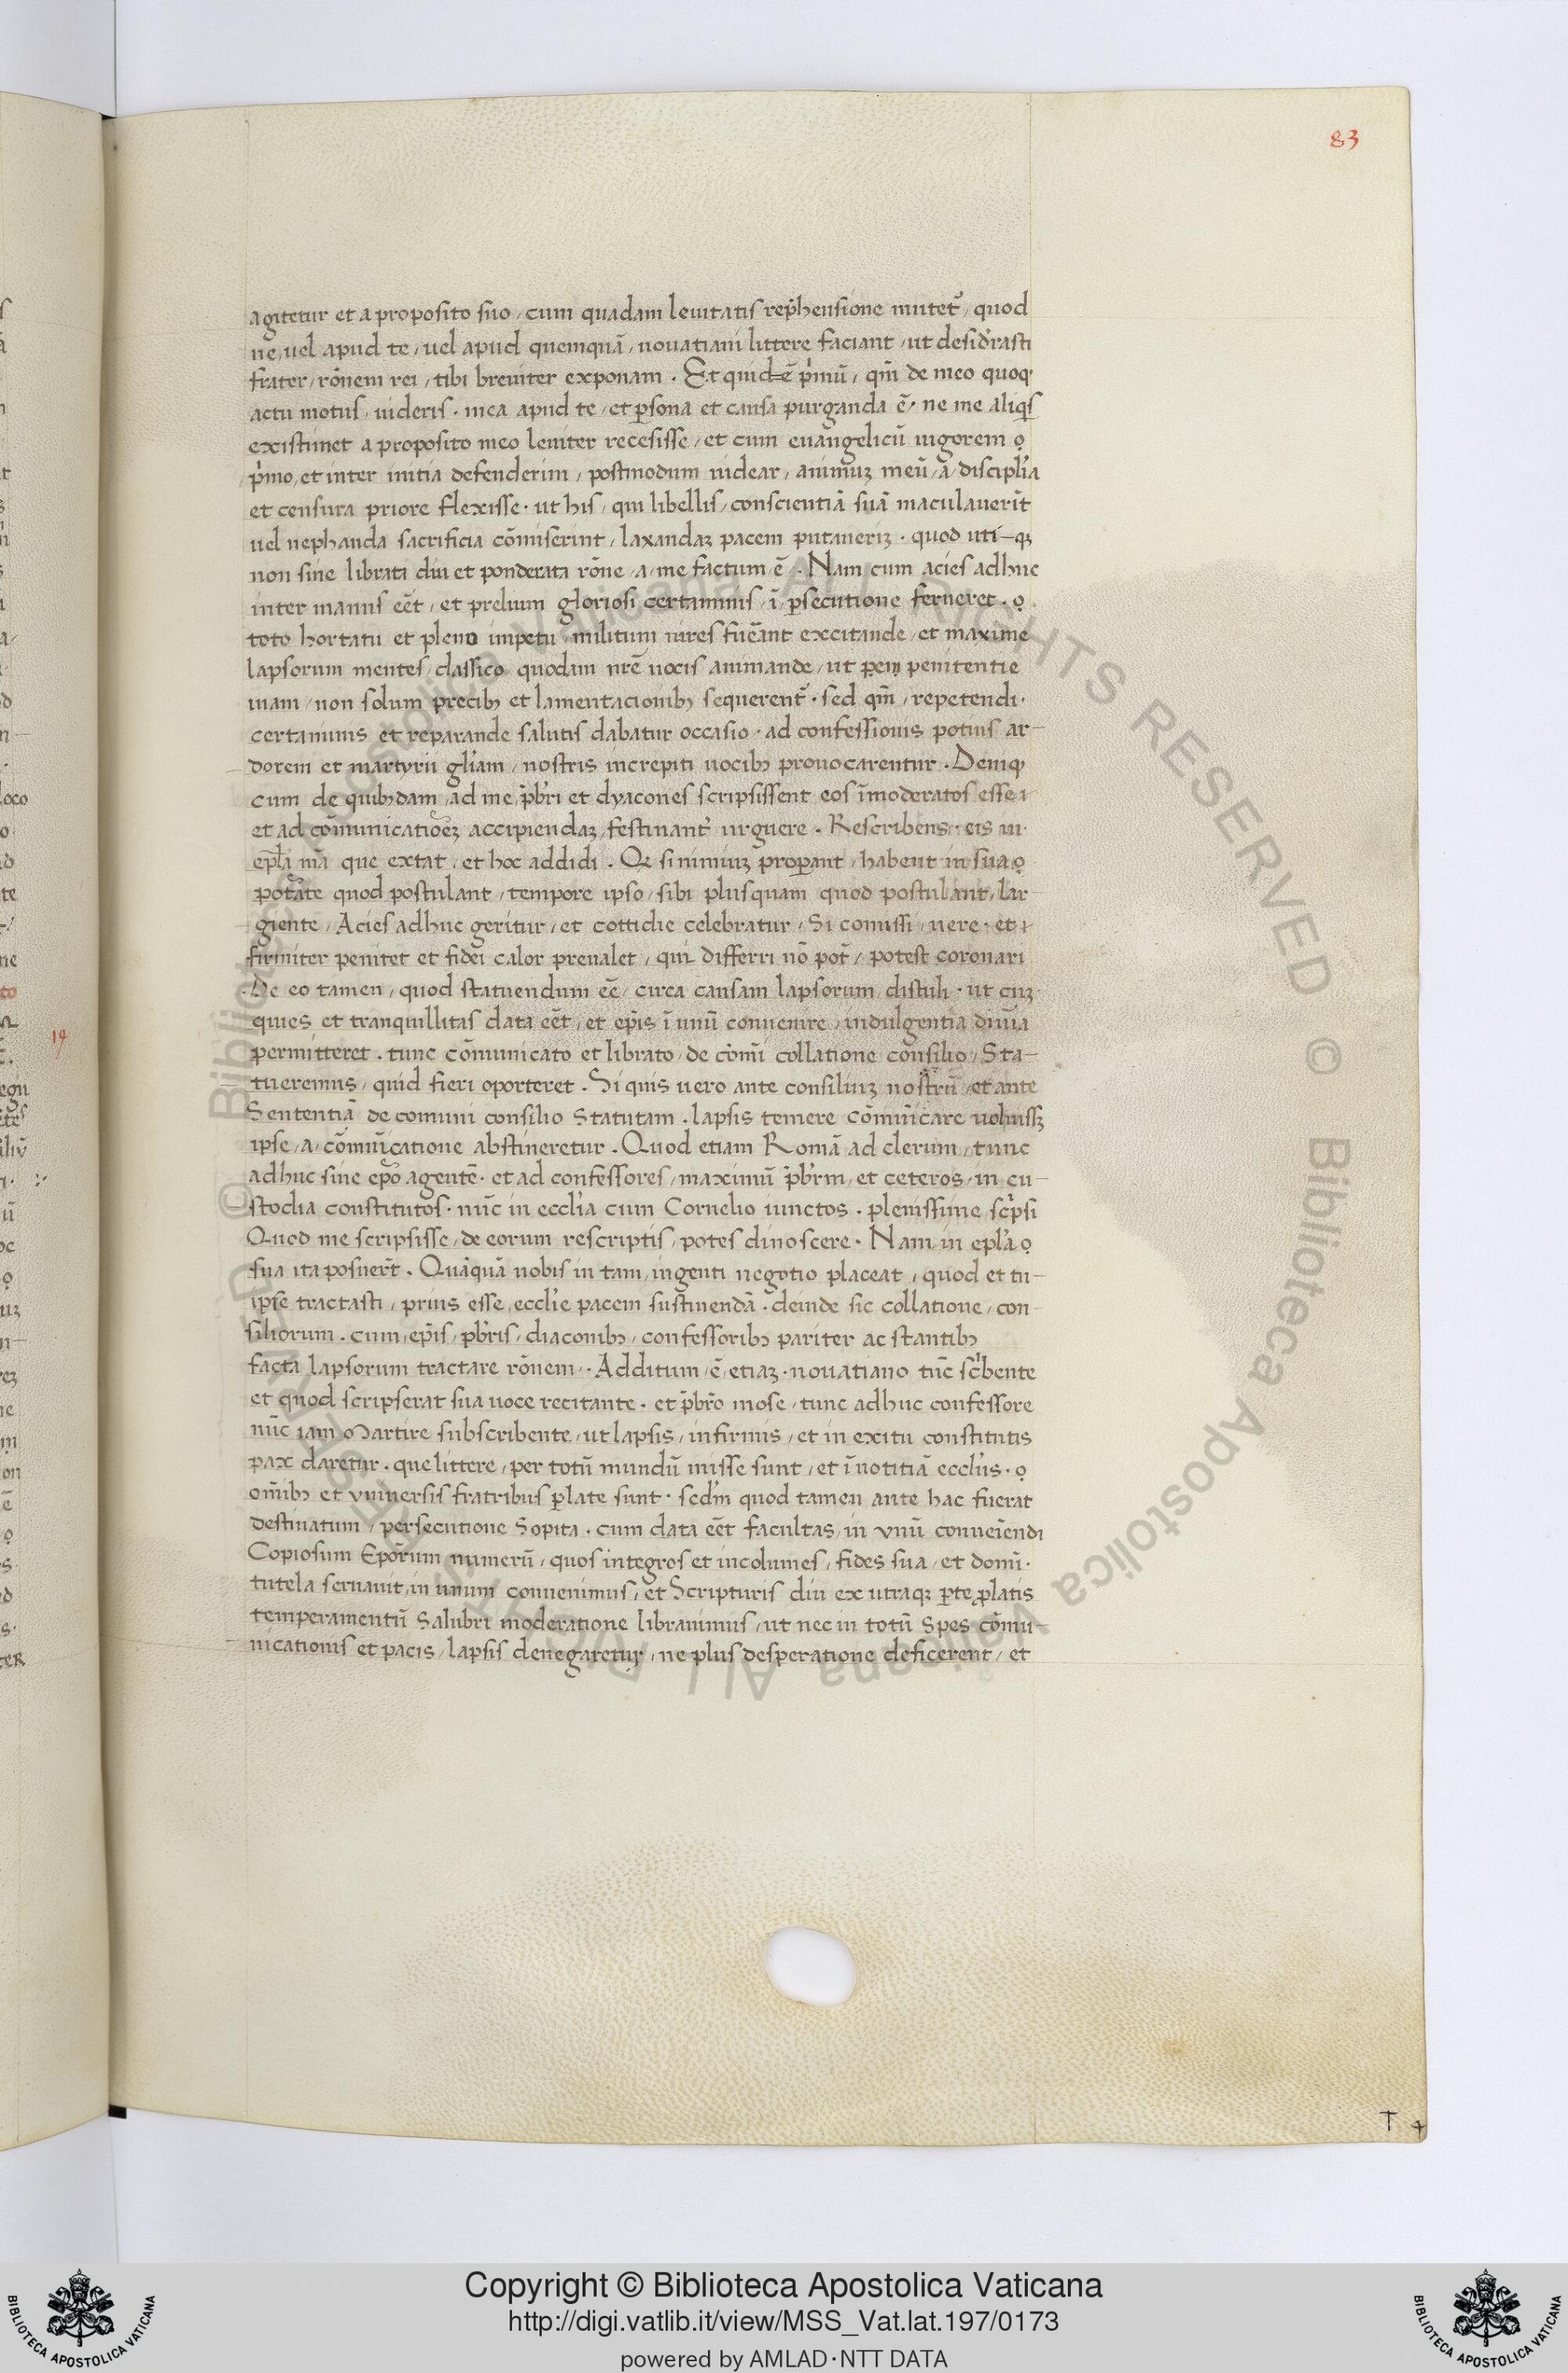 83
agitetur et a proposito suo / cum quadam leuitatis rep̃hensione mutet᷑ / quod
ne / uel apud te / uel apud quemquã / nouatiani littere faciant / ut desiderasti
frater / rõnem rei / tibi breuiter exponam . Et quidẽ p̃mũ / qm̃ de meo quoq
actu motus / uideris . mea apud te / et ꝑsona et causa purganda ẽ / ne me aliqs
existimet a proposito meo leuiter recesisse / et cum euangelicũ uigorem
p̃mo / et inter initia defenderim / postmodum uidear / animuꝫ meũ / a / disciplĩa
et censura priore flexisse . ut his / qui libellis / conscientiã suã maculauerĩt
uel nephanda sacrificia cõmiserint / laxandaꝫ pacem putaueriꝫ . quod uti-qꝫ
non sine librati diu et ponderata rõne / a / me factum ẽ . Nam cum acies adhuc
inter manus eẽt / et prelium gloriosi certaminis / ĩ / ꝑsecutione ferueret .
toto hortatu et pleno impetu / militum uires fuẽant excitande / et maxime
lapsorum mentes / classico quodam nrẽ uocis animande / ut penitentie
uiam / non solum precibꝫ et lamentacionibꝫ sequerent᷑ . sed qm̃ / repetendi .
certaminis et reparande salutis dabatur occasio . ad confessionis potius ar-
dorem et martyrii glĩam / nostris increpiti uocibꝫ prouocarentur . Deniqꝫ
cum de quibꝫdam / ad me / p̃bri et dyacones scripsissent eos ĩmoderatos esse
et ad cõmunicatiõeꝫ accipiendaꝫ / festinant᷑ urguere . Rescribens . eis in
epl̃a mã que extat / et hoc addidi . Q si nimiuꝫ properant / habent in sua
potãte quod postulant / tempore ipso / sibi plusquam quod postulant / lar-
giente / Acies adhuc geritur / et cottidie celebratur / Si comissi / uere . et
firmiter penitet et fidei calor preualet / qui differri nõ pot̃ / potest coronari
De eo tamen / quod statuendum eẽ / circa causam lapsorum distuli . ut cuꝫ
quies et tranquillitas data eẽt / et ep̃is ĩ unũ conuenire / indulgentia diuĩa
permitteret . tunc cõmunicato et librato / de cõmi collatione consilio / Sta-
tueremus / quid fieri oporteret . Si quis uero ante consiliuꝫ nostrũ / et ante
Sententiã de comuni consilio Statutam . lapsis temere cõmunicare uoluissꝫ
ipse / a / cõmũicatione abstineretur . Quod etiam Romã ad clerum / tunc
adhuc sine ep̃o agentẽ . et ad confessores / maximũ p̃brm / et ceteros / in cu-
stodia constitutos . nũc in ecclĩa cum Cornelio iunctos . plenissime sc̃psi
Quod me scripsisse / de eorum rescriptis / potes dinoscere . Nam in epl̃a
sua ita posuert̃ . Quãquã nobis in tam / ingenti negotio placeat / quod et tu-
ipse tractasti / prius esse / ecclĩe pacem sustinendã . deinde sic collatione / con-
siliorum . cum / ep̃is / p̃bris / diaconibꝫ / confessoribꝫ pariter ac stantibꝫ
facta lapsorum tractare rõnem . Additum / ẽ / etiaꝫ . nouatiano tũc sc̃bente
et quod scripserat sua uoce recitante . et p̃bro mose / tunc adhuc confessore
nũc iam Martire subscribente / ut lapsis / infirmis / et in exitu constitutis
pax daretur . que littere / per totũ mundũ misse sunt / et ĩ notitiã ecclĩis .
om̃ibꝫ et vniuersis fratribus ꝑlate sunt . sed̃m quod tamen ante hac fuerat
destinatum / persecutione Sopita . cum data eẽt facultas / in vnũ conueĩendi
Copiosum Ep̃orum numerũ / quos integros et incolumes / fides sua / et domĩ .
tutela seruauit / in unum conuenimus / et Scripturis diu ex utraqꝫ ꝑte ꝓlatis
temperamentũ Salubri moderatione librauimus / ut nec in totũ Spes cõmu-
nicationis et pacis / lapsis denegaretur / ne plus desperatione deficerent / et
19
T 4
© Biblioteca Apostolica Vaticana ALL RIGHTS RESERVED
Copyright © Biblioteca Apostolica Vaticana
http://digi.vatlib.it/view/MSS_Vat.lat.197/0173
powered by AMLAD·NTT DATA
BIBLIOTECA APOSTOLICA VATICANA
BIBLIOTECA APOSTOLICA VATICANA